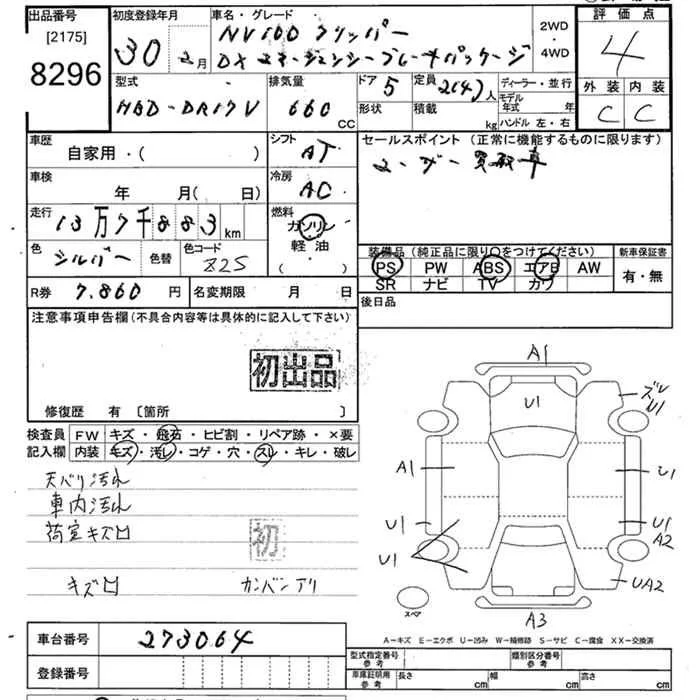 出品番号 初度登録年月 車名・グレード 評価点
[2175]
8296
30 2月
NV100 クリッパー
DX エマージェンシーブレーキパッケージ
2WD
・
4WD
4
型式 排気量 ドア 5 定員 2(4)人 ディーラー・並行
外装 内装
HBD-DR17V 660 CC
形状 積載 kg
モデル年式 年
ハンドル 左・右
C C
車歴 シフト セールスポイント (正常に機能するものに限ります)
自家用・( ) AT
ユーザー買取車
車検 冷房
年 月( 日) AC
走行 燃料
13万7千883km
ガソリン
軽油・
( )
色 シルバー 色替 色コード Z2S
装備品(純正品に限り○をつけてください) 新車保証書
PS PW ABS エアB AW
SR ナビ TV カワ
有・無
R券 7.860 円 名変期限 月 日
後日品
注意事項申告欄(不具合内容等は具体的に記入して下さい)
初出品
修復歴 有 〔箇所 〕
検査員 FW キズ・飛石・ヒビ割・リペア跡・×要
記入欄 内装 キズ・汚レ・コゲ・穴・スレ・キレ・破レ
天バリ汚れ
車内汚れ
荷室キズ凹
初
キズ凹 カンバンアリ
A1
U1
ズレ
U1
A1
U1
U1
U1
U1
A2
UA2
スペア
A3
A-キズ E-エクボ U-凹み W-補修跡 S-サビ C-腐食 XX-交換済
車台番号 273064
登録番号
型式指定番号 参考 類別区分番号 参考
車庫証明用 参考 長さ cm 幅 cm 高さ cm